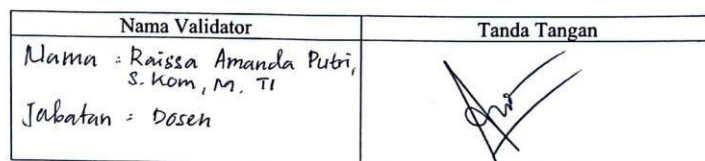 Nama Validator
Tanda Tangan
Nama : Raissa Amanda Putri,
S.Kom, M. TI
Jabatan : Dosen